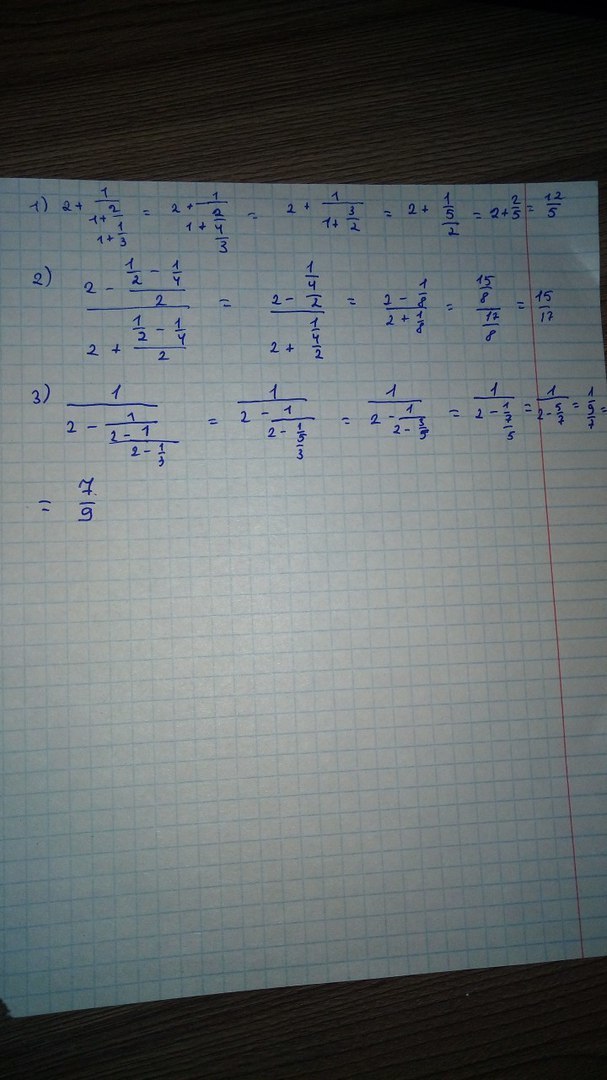 1) 2 + 1/(1 + 2/(1 + 1/3)) = 2 + 1/(1 + 2/(4/3)) = 2 + 1/(1 + 3/2) = 2 + 1/(5/2) = 2 + 2/5 = 12/5
2) (2 - (1/2 - 1/4)/2)/(2 + (1/2 - 1/4)/2) = (2 - (1/4)/2)/(2 + (1/4)/2) = (2 - 1/8)/(2 + 1/8) = (15/8)/(17/8) = 15/17
3) 1/(2 - 1/(2 - 1/(2 - 1/3))) = 1/(2 - 1/(2 - 1/(5/3))) = 1/(2 - 1/(2 - 3/5)) = 1/(2 - 1/(7/5)) = 1/(2 - 5/7) = 1/(9/7) =
= 7/9